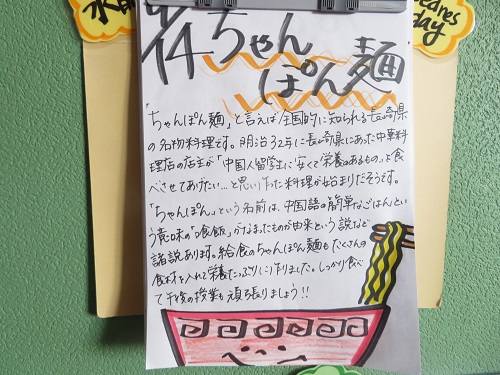 水曜
Wednes
day
9/14 ちゃん
ぽん麺
「ちゃんぽん麺」と言えば全国的に知られる長崎県
の名物料理です。明治32年に長崎県にあった中華料
理店の店主が「中国人留学生に安くて栄養のあるものを食
べさせてあげたい…と思い作った料理が始まりだそうです。
「ちゃんぽん」という名前は、中国語の簡単なごはんとい
う意味の「喰飯」がなまったものが由来という説など
諸説あります。給食のちゃんぽん麺もたくさんの
食材を入れて栄養たっぷりに作りました。しっかり食べ
て午後の授業も頑張りましょう!!